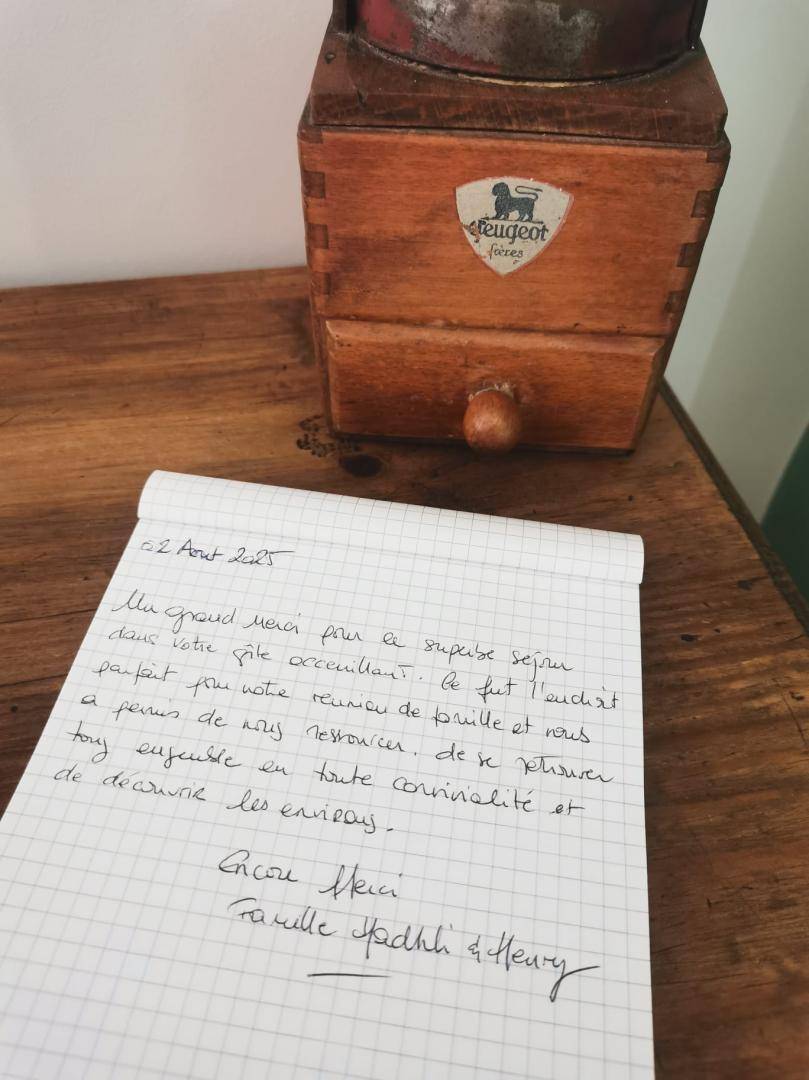 Peugeot
frères
02 Aout 2025
Un grand merci pour ce superbe séjour
dans votre gîte acceuillant. Ce fut l'endroit
parfait pour notre réunion de famille et nous
a permis de nous ressourcer. de se retrouver
tous ensemble en toute convivialité et
de découvrir les environs.
Encore Merci
Famille & Henry